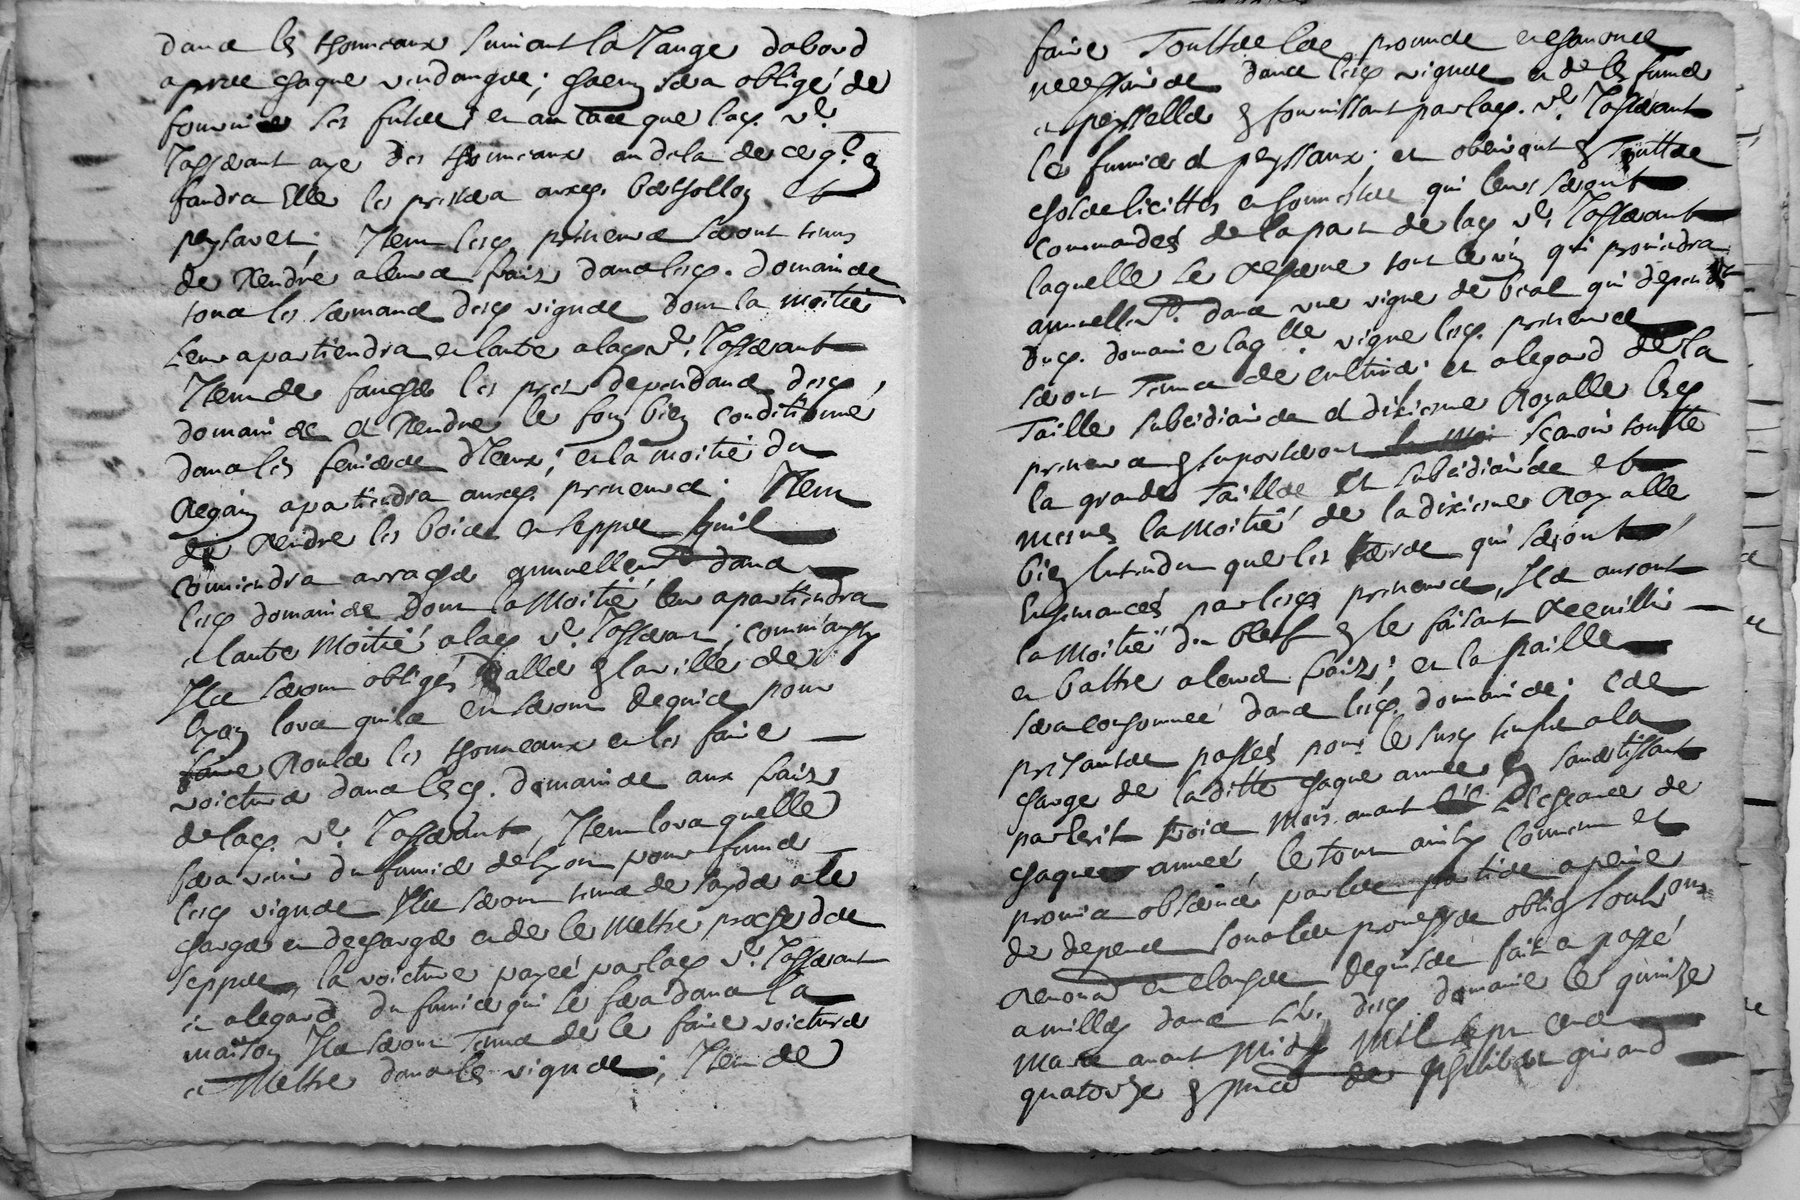 dans les thonneaux suivant la Jauge dabord
apres chaque vendangee; chacun sera obligé de
fournir ses futtes; et au cas que lad. dlle.
Jasserant aye des thonneaux au dela de ce ql. en
faudra Elle les prestera auxd. Berthollon et
peysaret; Item lesd. preneurs seront tenus
de Rendre a leurs frais dans lesd. domaines
tous les sarments desd. vignes dont la moitié
Leur apartiendra et lautre a lad. dlle. Jasserant
Item de faucher les prets dependants desd.
domaines et Rendre le foin bien conditionné
dans les fenieres diceux; et la moitié du
Regain apartiendra auxd. preneurs; Item
de Rendre les bois et seppes quil
conviendra arracher annuellemt. dans
lesd. domaines dont la Moitié leur apartiendra
et lautre Moitié a lad. dlle. Jasserant; comme aussy
Ils seront obligés daller en la ville de
lyon lors quils en seront Requis pour
faire Rouler les thonneaux et les faire
voicturer dans lesd. domaines aux frais
de lad. dlle. Jasserant, Item lors quelle
fera venir du fumier de lyon pour fumer
lesd. vignes Ils seront tenus de sayder a le
charger et decharger et de le Mettre proche des
seppes, la voicture payeé par lad. dlle. Jasserant
et a legard du fumier qui se fera dans la
maison Ils seront tenus de le faire voicturer
et Mettre dans les vignes; Item de
faire Touttes les provins et
necessaires dans lesd. vignes et de les fumer
et peysseller en fournissant par lad. dlle. Jasserant
les fumier et peyssaux; et obeiront en Touttes
choses licittes et honnestes qui leurs seront
commandés de la part de lad. dlle. Jasserant
laquelle se Reserve tout le vin qui proviendra
annuellemt. dans une vigne de qui depend
dud. domaine laqlle. vigne lesd. preneurs
seront Tenus de cultiver et a legard de la
Taille subsidiaires et dixieme Royalle lesd.
preneurs en suporteront sçavoir toutte
la grande Taille et subsidiaires et
mesmes la Moitié de la dixieme Royalle
bien Entendu que les terres qui seront
Ensemancés par lesd. preneurs, Ils auront
la Moitié du Bled en le faisant Recuillir
et battre a leurs frais; et la paille
sera consommeé dans lesd. domaines; Ces
presantes passés pour le susd. temps a la
charge de la ditte chaque année en sadvertissant
par escrit trois Mois avant Lescheance de
chaque anneé, le tout ainsy convenu et
promis observer par les parties a peine
de depens sous les promesses oblig. soub.ons
Renon.ons et clauses Requises fait et passé
a dans L'un. desd. domaine le quinze
Mars avant Midy Mil sept cens
quatorze en pnce de Philibert giraud